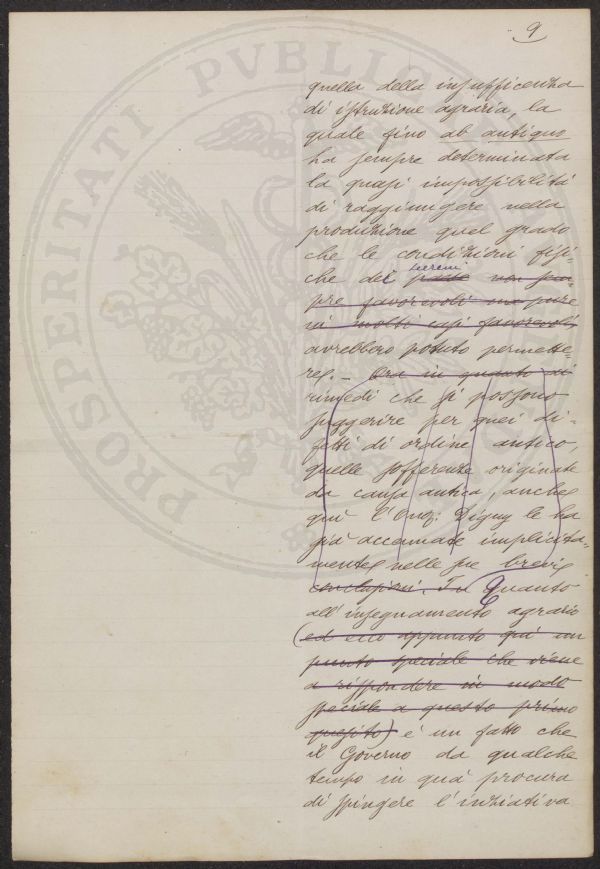 9
PROSPERITATI PVBLIC
quella della insufficenza
di istruzione agraria, la
quale fino ab antiquo
ha sempre determinata
la quasi impossibilità
di raggiungere nella
produzione quel grado
che le condizioni fisi-
che dei terreni paese non sem-
pre favorevoli ma pure
in molti casi favorevoli,
avrebbero potuto permette-
re. - Ora in quanto ai
rimedi che si possono
suggerire per quei di-
fetti di ordine antico,
quelle sofferenze originate
da causa antica, anche
quì l'Onor: Digny le ha
già accennate implicita-
mente nelle sue brevi
conclusioni. In Quanto
all'insegnamento agrario
(ed ecco appunto quì un
punto speciale che viene
a rispondere in modo
speciale a questo primo
quesito) è un fatto che
il Governo da qualche
tempo in quà procura
di spingere l'iniziativa